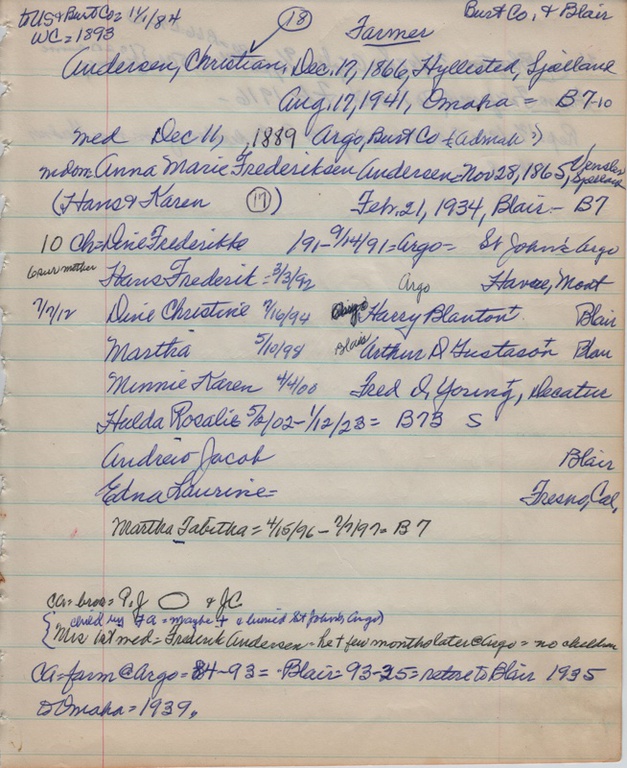 to US & Burt Co = 11/1/84 (18) Burt Co. & Blair
WC = 1893 Farmer
Andersen, Christian, Dec. 17, 1866, Hyllested, Sjelland
Aug. 17, 1941, Omaha = B7-10
med Dec 11, 1889 Argo, Burt Co
Anna Marie Frederiksen Andersen = Nov 28, 1865,
(Hans & Karen (17)) Feb. 21, 1934, Blair - B7
10 Ch = Dine Frederikke 191 - 9/14/91 = Argo = St John's Argo
6 surv mother Hans Frederik = 3/3/92 Argo Havre, Mont
7/7/12 Dine Christine 7/16/94 Harry Blanton Blair
Martha 5/10/98 Blair Arthur D Gustason Blair
Minnie Karen 4/4/00 Fred D, Young, Decatur
Hulda Rosalie 5/2/02 - 1/12/23 = B73 S
Andrew Jacob Blair
Edna Laurine = Fresno, Cal,
Martha Tabitha = 4/15/96 - 7/7/97 = B 7
CA = bros = P.J & JC
= maybe + & buried St John's, Argo)
{ Mrs 1st med = Frederik Andersen - he + few months later @ Argo = no children
CA = farm @ Argo = 84-93 = Blair = 93-35 = retire to Blair 1935
to Omaha = 1939.